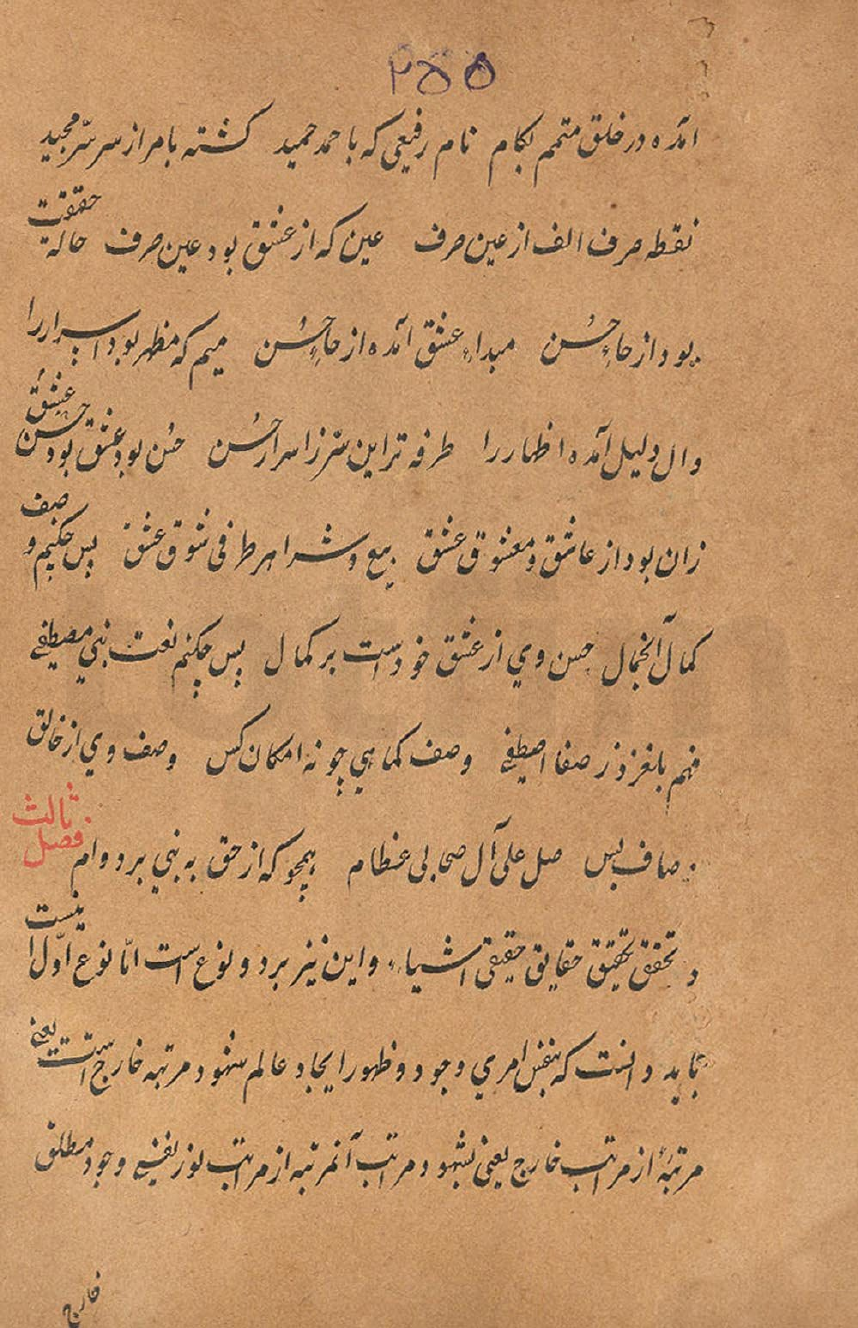 ۲۵۵
آمده در خلق متمم بکام نام رفیعی که با حمد حمید کشته بامر از سر سرّ مجید
نقطه صرف الف از عین صرف عین که از عشق بود عین صرف حاله حقیقت
بود از حاءِ حُسن مبداء عشق آمده از حاءِ حُسن میم که مظهر بود اسرار را
وال دلیل آمده اظهار را طرفه تر این سرّ ز اسرار حُسن حُسن بود عشق بود حسن عشق
زان بود از عاشق و معشوق عشق بیع و شرا هر طرفی شوق عشق پس چکنم وصف
کمال الجمال حسن وی از عشق خود است بر کمال پس چکنم نعت نبی مصطفی
فهم بلغزد ز صفا اصطفی وصف کماهی چو نه امکان کس وصف وی از خالق
صاف بس صل علی آل صحابی عظام همچو که از حق به نبی بر دوام
فصل ثالث
در تحقق تحقیق حقایق حقیقی اشیاء و این نیز بر دو نوع است امّا نوع اوّل اینست
بباید دانست که بنفس امری وجود و ظهور ایجاد عالم شهود مرتبه خارج است یعنی
مرتبهٔ از مراتب خارج یعنی بشهود مراتب آنمرتبه از مراتب وجود مطلق
خارج